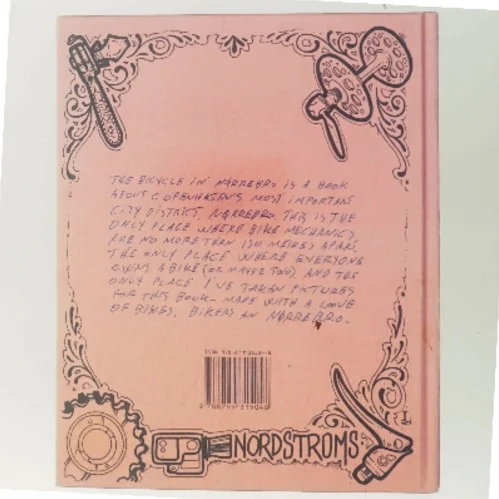 THE BICYCLE IN NØRREBRO IS A BOOK
ABOUT COPENHAGEN'S MOST IMPORTANT
CITY DISTRICT, NØRREBRO. THIS IS THE
ONLY PLACE WHERE BIKE MECHANICS
ARE NO MORE THAN 150 METRES APART,
THE ONLY PLACE WHERE EVERYONE
OWNS A BIKE (OR MAYBE TWO), AND THE
ONLY PLACE I'VE TAKEN PICTURES
FOR THIS BOOK – MADE WITH A LOVE
OF BIKES, BIKERS AN NØRREBRO.
NORDSTROMS